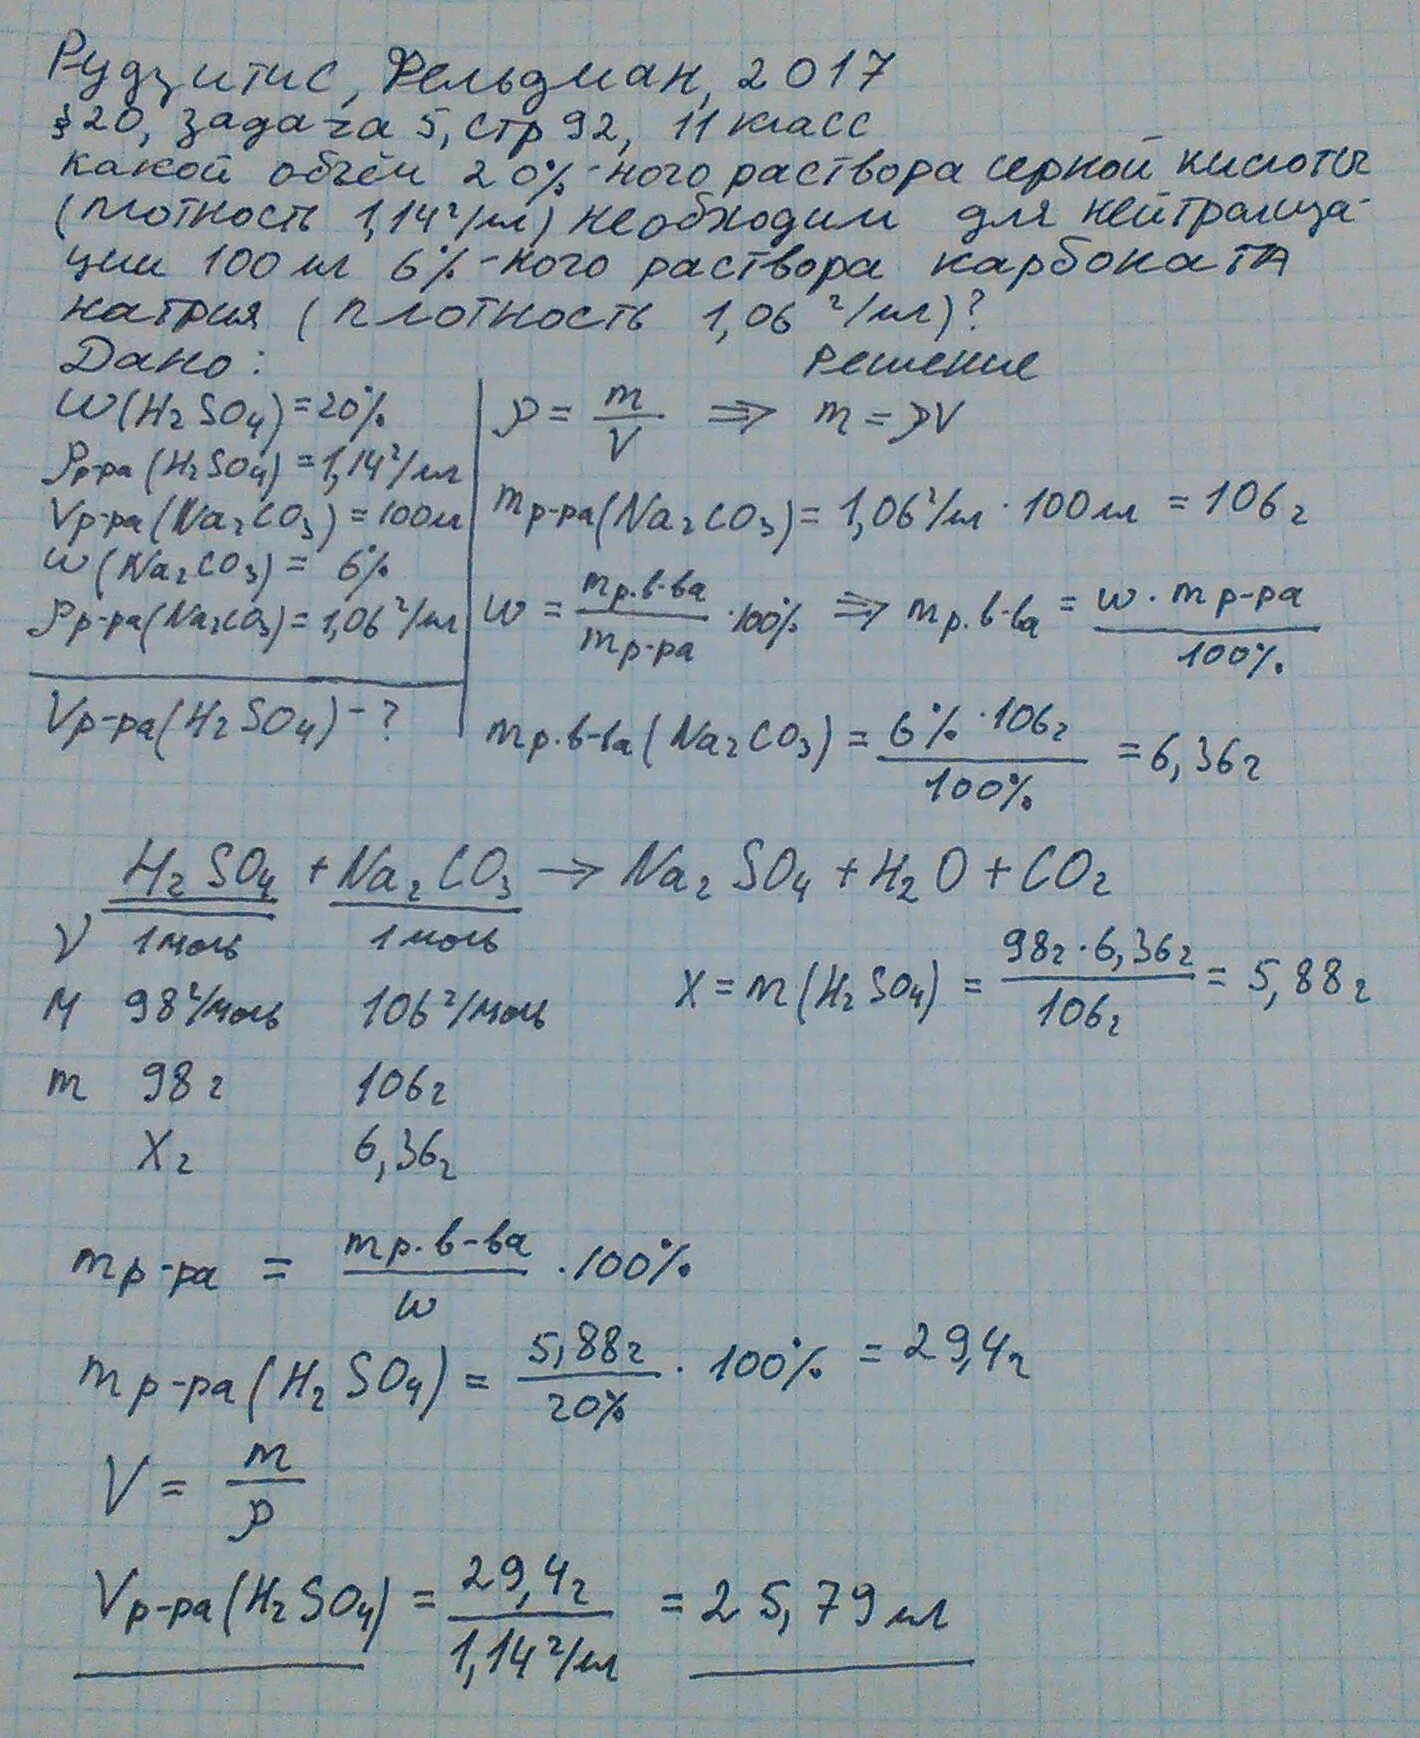 Рудзитис, Фельдман, 2017
§20, задача 5, стр 92, 11 класс
Какой объём 20%-ного раствора серной кислоты
(плотность 1,14 г/мл) необходим для нейтрализа-
ции 100 мл 6%-ного раствора карбоната
натрия (плотность 1,06 г/мл)?
Дано:
W(H₂SO₄) = 20%
ρр-ра(H₂SO₄) = 1,14 г/мл
Vр-ра(Na₂CO₃) = 100 мл
W(Na₂CO₃) = 6%
ρр-ра(Na₂CO₃) = 1,06 г/мл
Vр-ра(H₂SO₄) - ?
Решение
ρ = m/V ⇒ m = ρV
mр-ра(Na₂CO₃) = 1,06 г/мл · 100 мл = 106 г
W = mр.в-ва/mр-ра · 100% ⇒ mр.в-ва = W · mр-ра/100%
mр.в-ва(Na₂CO₃) = 6% · 106 г/100% = 6,36 г
H₂SO₄ + Na₂CO₃ → Na₂SO₄ + H₂O + CO₂
ν 1 моль 1 моль
M 98 г/моль 106 г/моль
m 98 г 106 г
X г 6,36 г
X = m(H₂SO₄) = 98 г · 6,36 г/106 г = 5,88 г
mр-ра = mр.в-ва/W · 100%
mр-ра(H₂SO₄) = 5,88 г/20% · 100% = 29,4 г
V = m/ρ
Vр-ра(H₂SO₄) = 29,4 г/1,14 г/мл = 25,79 мл